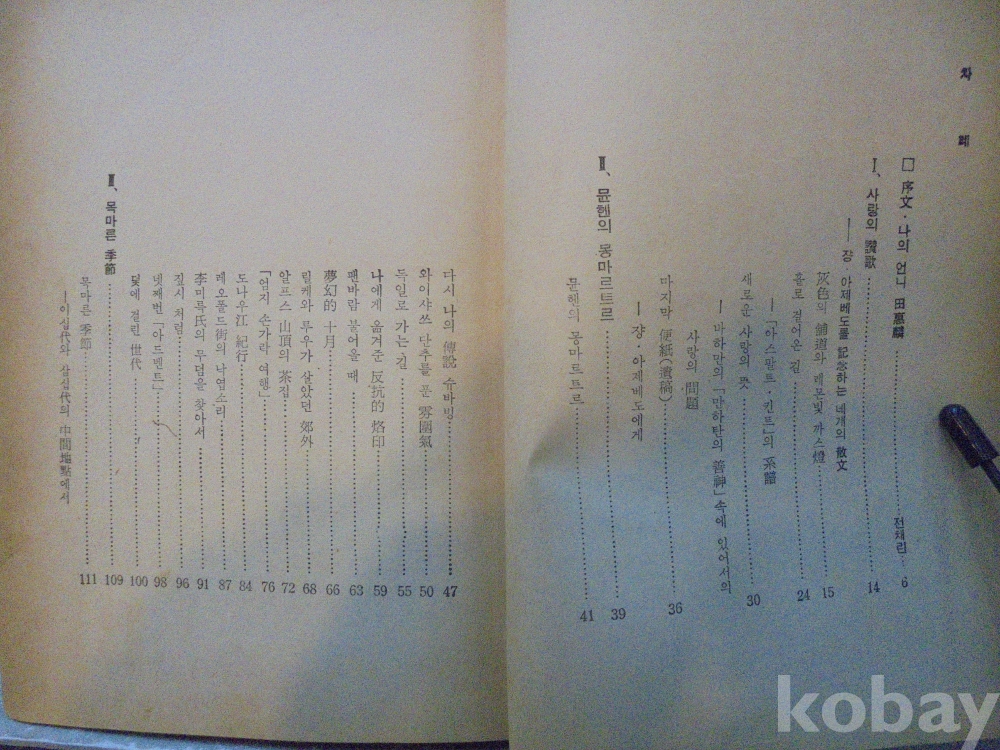 차 례
□ 序文·나의 언니 田惠麟 전채린 6
Ⅰ、사랑의 讚歌 14
── 쟝·아제베도를 記念하는 네개의 散文
灰色의 舖道와 레몬빛 까스燈 15
홀로 걸어온 길 24
─「아스팔트·킨트」의 系譜
새로운 사랑의 뜻 30
─ 바하만의 「만하탄의 善神」속에 있어서의
사랑의 問題
마지막 便紙(遺稿) 36
─ 쟝·아제베도에게
Ⅱ、뮨헨의 몽마르트르 39
뮨헨의 몽마르트르 41
다시 나의 傳說 슈바빙 47
와이샤쓰 단추를 푼 雰圍氣 50
독일로 가는 길 55
나에게 옮겨준 反抗的 烙印 59
팬바람 불어올 때 63
夢幻的 十月 66
릴케와 루우가 살았던 郊外 68
알프스 山頂의 茶집 72
「엄지 손가락 여행」 76
도나우江 紀行 84
레오폴드街의 낙엽소리 87
李미륵氏의 무덤을 찾아서 91
집시 처럼 96
넷째번 「아드벤트」 98
덫에 걸린 世代 100
Ⅲ、목마른 季節 109
목마른 季節 111
─이십代와 삼십代의 中間地點에서
kobay